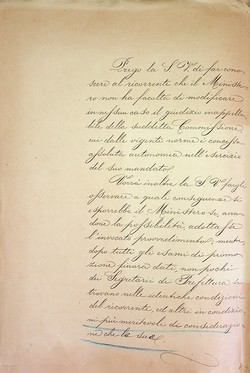 Prego la S. V. di far cono-
scere al ricorrente che il Ministe-
ro non ha facoltà di modificare
in nessun caso il giudizio inappella-
bile della suddetta Commissione,
cui dalle vigenti norme è concessa
assoluta autonomia nell'esercizio
del suo mandato.
Vorrà inoltre la S. V. fargli
osservare a quali conseguenze si
esporrebbe il Ministero se, aven-
done la possibilità, adottasse
l'invocato provvedimento, mentre
dopo tutti gli esami di promo-
zione finora dati, non pochi
dei Segretari di Prefettura si
trovano nelle identiche condizioni
del ricorrente, ed altri in condizio-
ni più meritevoli di considerazio-
ne che le sue.